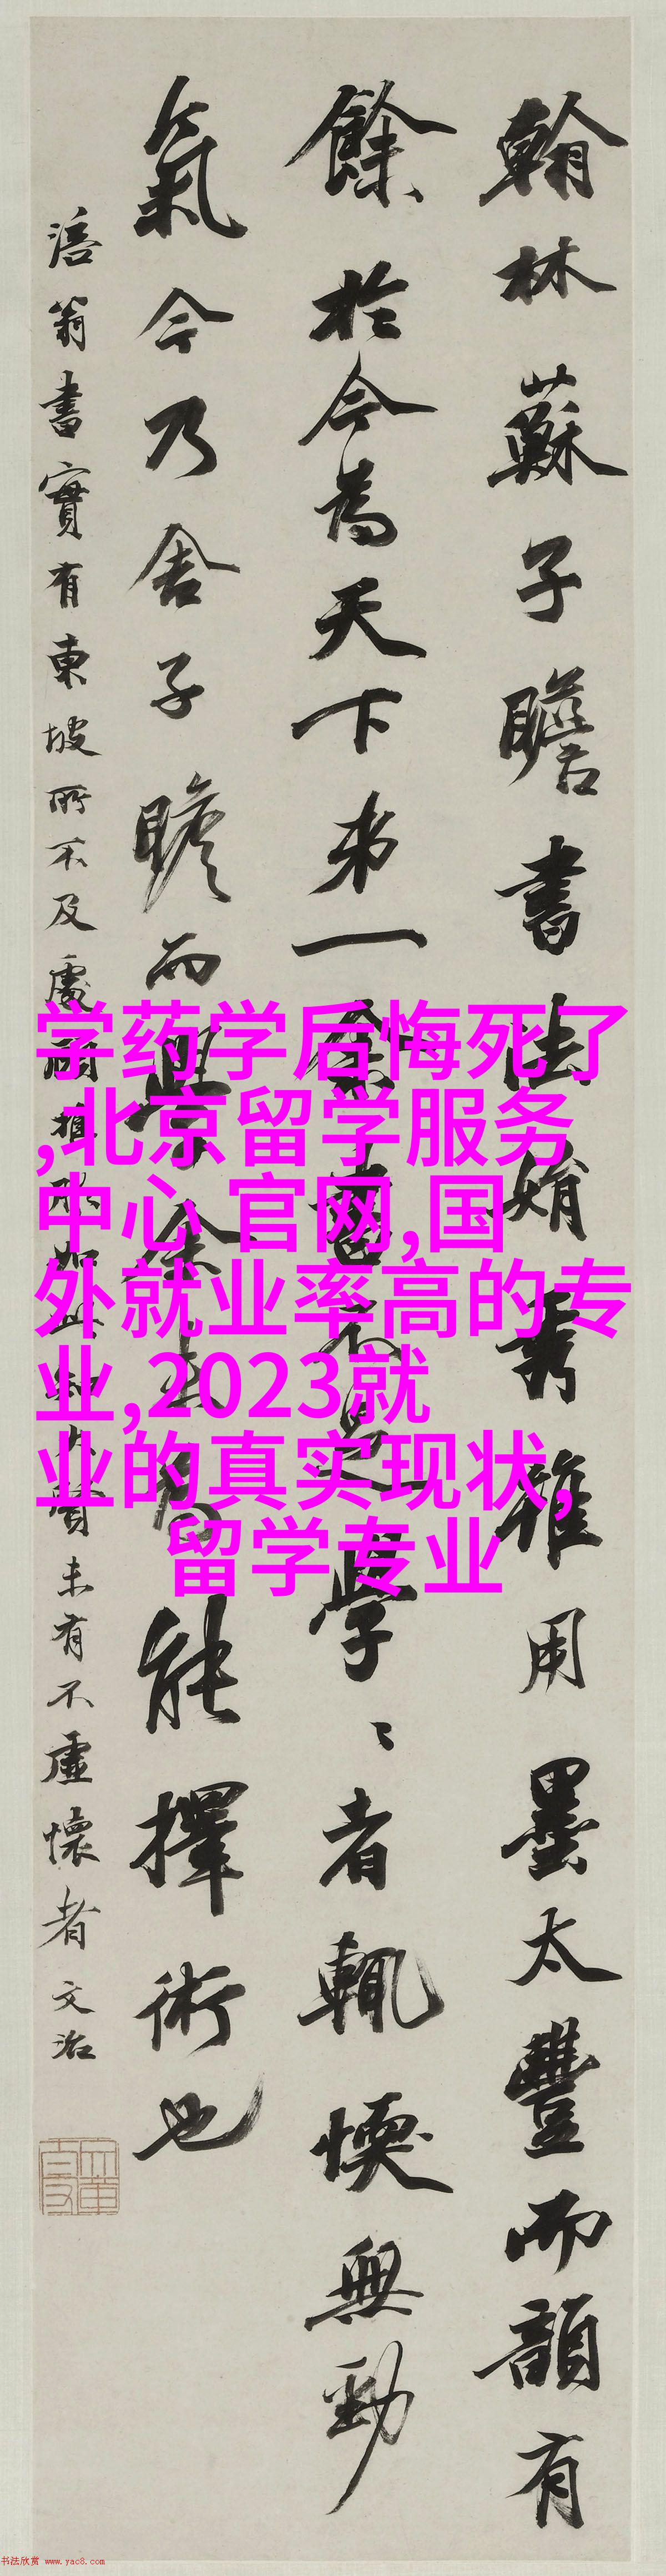 翰林蘇子瞻書法娟秀雖用墨太豐而韻有
餘於今為天下第一余書不足學〻者輒愞無勁
氣今乃舍子瞻而學余未為能擇術也
涪翁書實有東坡所不及處顧推服如此知大賢未有不虛懷者文治
学药学后悔死了
,北京留学服务
中心 官网,国
外就业率高的专
业,2023就
业的真实现状,
留学专业
书法欣赏 www.yac8.com